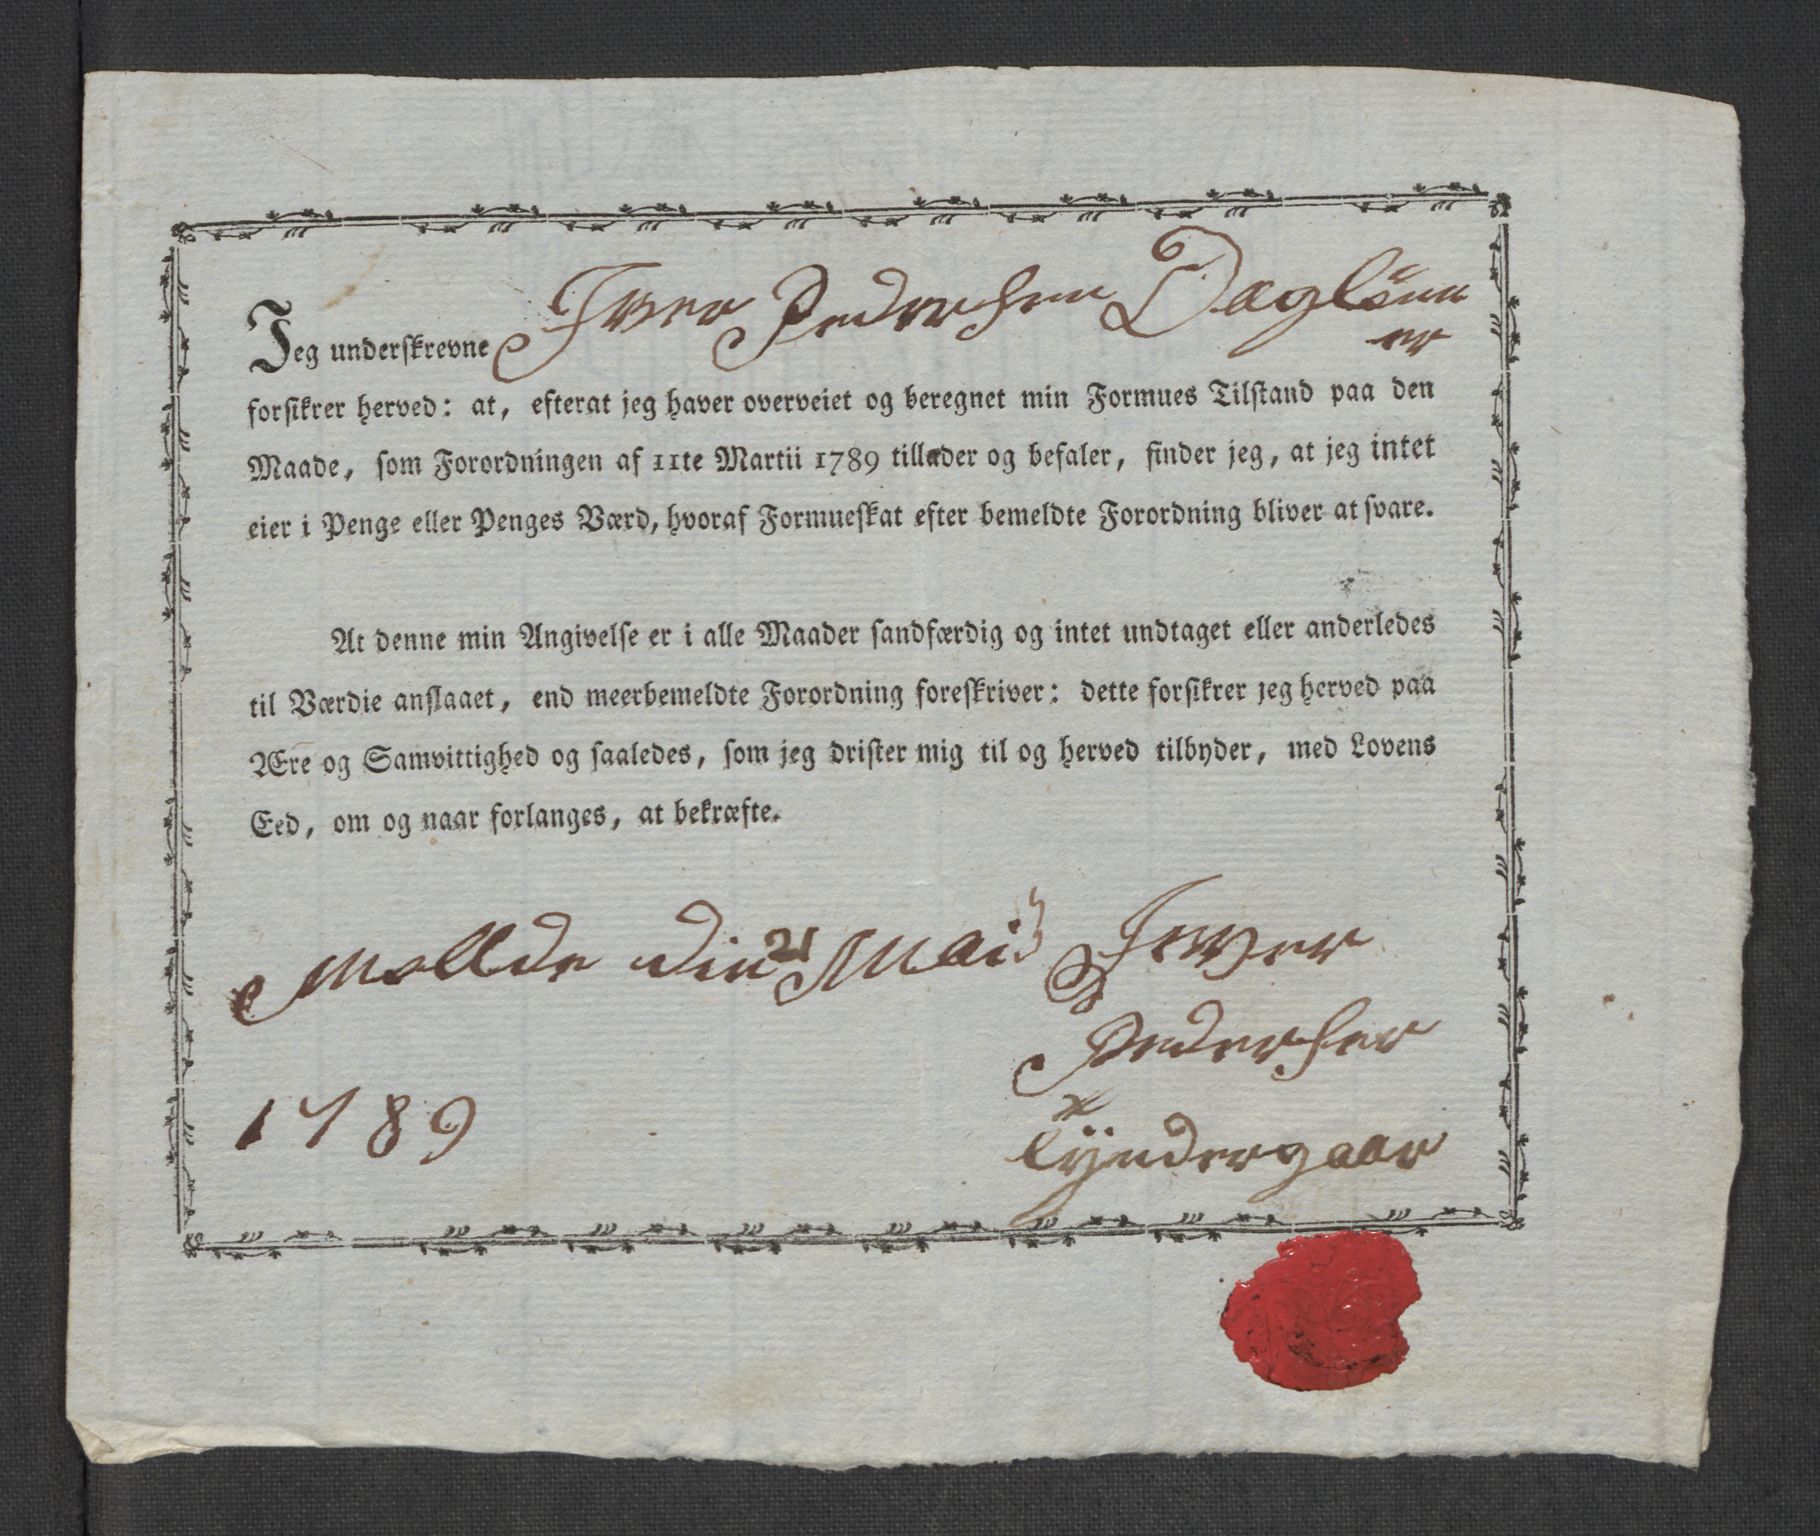 Jeg underskrevne Iver Pedersen Daglönn
er
forsikrer herved: at, efterat jeg haver overveiet og beregnet min Formues Tilstand paa den
Maade, som Forordningen af 11te Martii 1789 tillader og befaler, finder jeg, at jeg intet
eier i Penge eller Penges Værd, hvoraf Formueskat efter bemeldte Forordning bliver at svare.
At denne min Angivelse er i alle Maader sandfærdig og intet undtaget eller anderledes
til Værdie anslaaet, end meerbemeldte Forordning foreskriver: dette forsikrer jeg herved paa
Ære og Samvittighed og saaledes, som jeg drister mig til og herved tilbyder, med Lovens
Eed, om og naar forlanges, at bekræfte.
Mollde din 21 Mai Iwer
1789 Pedersen